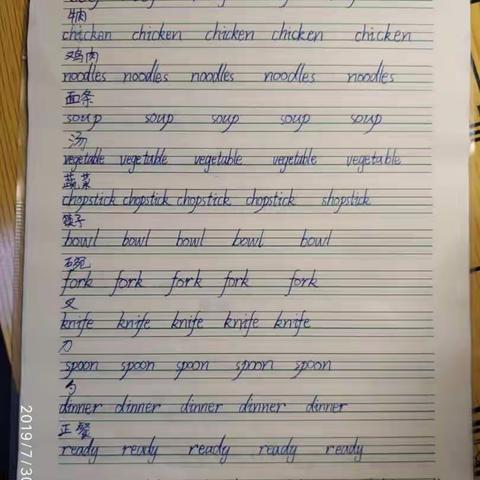 牛肉
chicken chicken chicken chicken chicken
鸡肉
noodles noodles noodles noodles noodles
面条
soup soup soup soup soup
汤
vegetable vegetable vegetable vegetable vegetable
蔬菜
chopstick chopstick chopstick chopstick shopstick
筷子
bowl bowl bowl bowl bowl
碗
fork fork fork fork fork
叉
knife knife knife knife knife
刀
spoon spoon spoon spoon spoon
勺
dinner dinner dinner dinner dinner
正餐
ready ready ready ready ready
2019/7/30